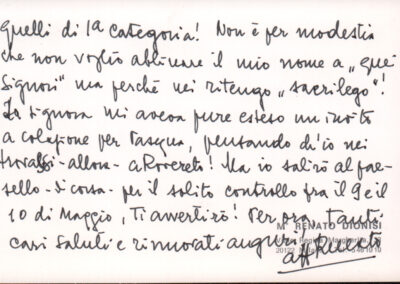 Quelli di 1ª Categoria! Non è per modestia
che non voglio abbinare il mio nome a "quei
Signori" ma perché nei ritengo "sacrilego"!
La signora mi aveva pure esteso un invito
a colazione per Pasqua, pensando ch'io nei
trovassi - allora - a Rovereto! Ma io salirò al pae-
sello - di corsa - per il solito controllo fra il 9 e il
10 di Maggio, Ti avvertirò! Per ora, tanti
cari saluti e rinnovati auguri!
M° RENATO DIONISI
20122
aff Renato